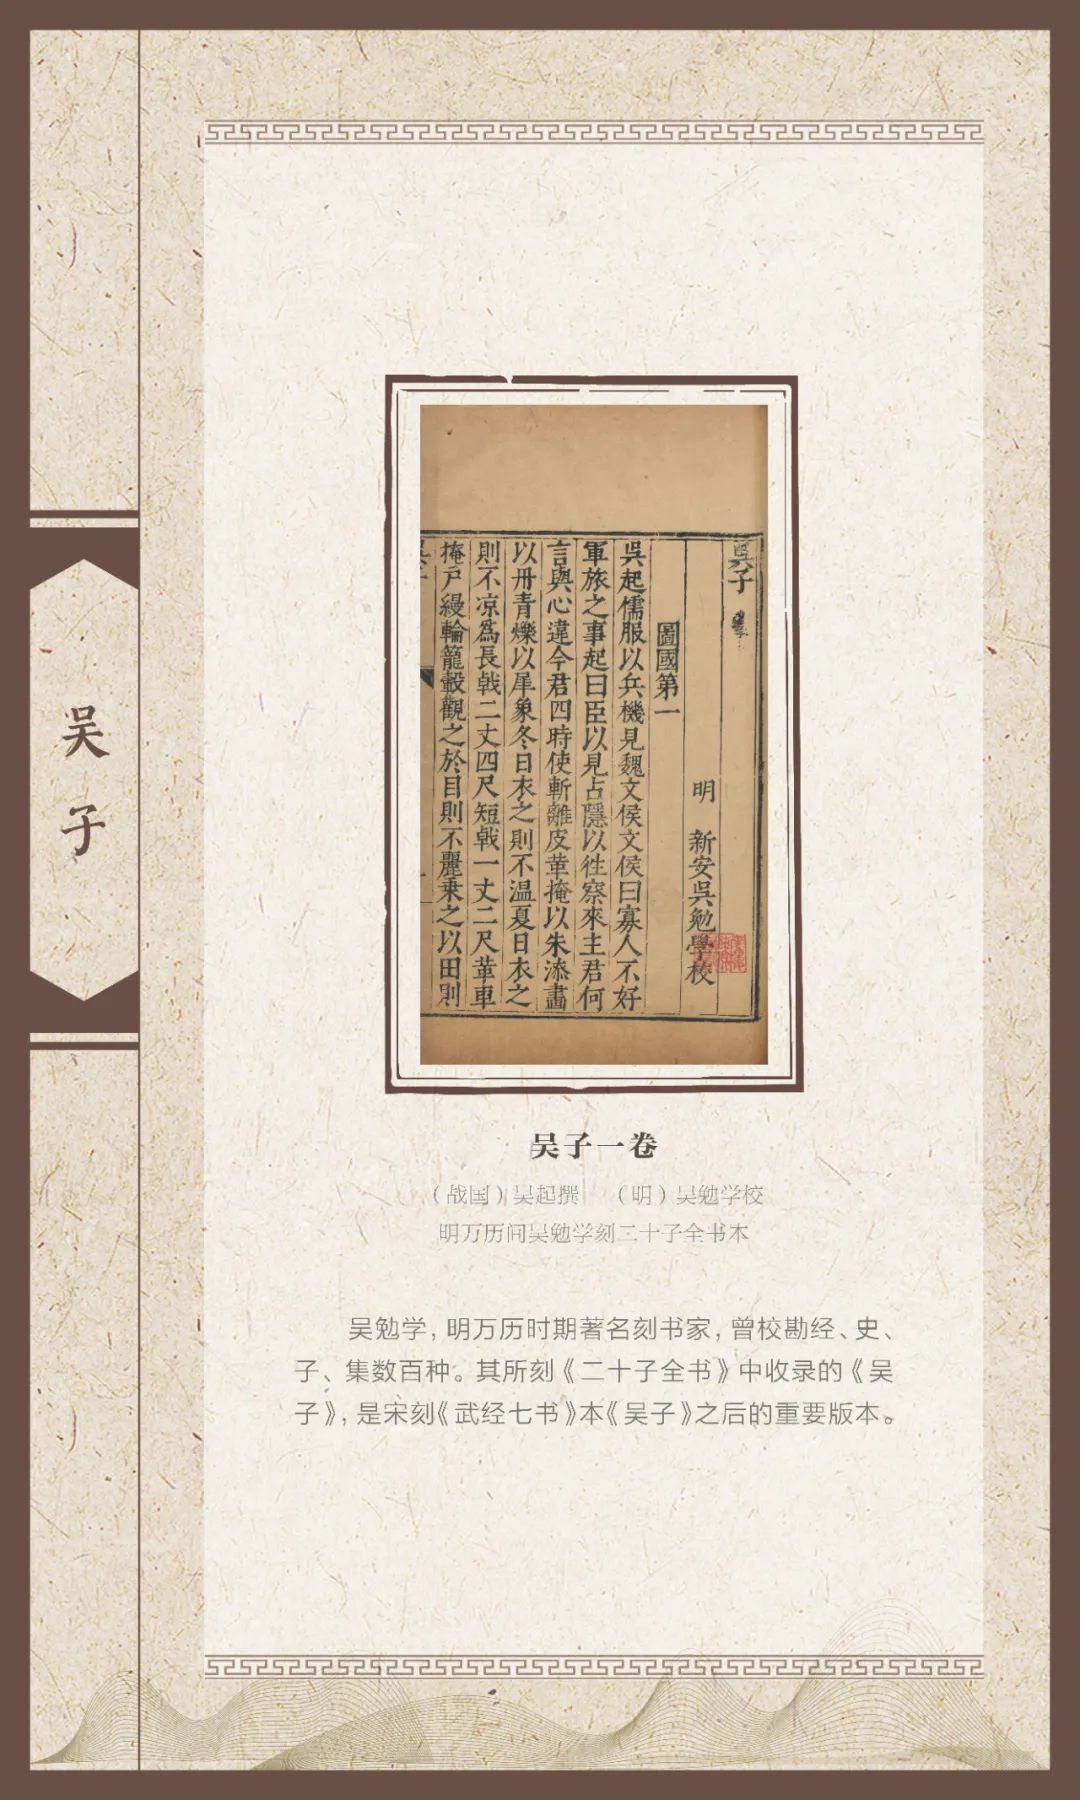 吴子
吳子
明　新安吳勉學校
圖國第一
吳起儒服以兵機見魏文侯文侯曰寡人不好
軍旅之事起曰臣以見占隱以徃察來主君何
言與心違今君四時使斬離皮革掩以朱漆畫
以丹青爍以犀象冬日衣之則不温夏日衣之
則不凉爲長戟二丈四尺短戟一丈二尺革車
掩戸縵輪籠轂觀之於目則不麗乗之以田則
吴子一卷
（战国）吴起撰　（明）吴勉学校
明万历间吴勉学刻二十子全书本
吴勉学，明万历时期著名刻书家，曾校勘经、史、
子、集数百种。其所刻《二十子全书》中收录的《吴
子》，是宋刻《武经七书》本《吴子》之后的重要版本。